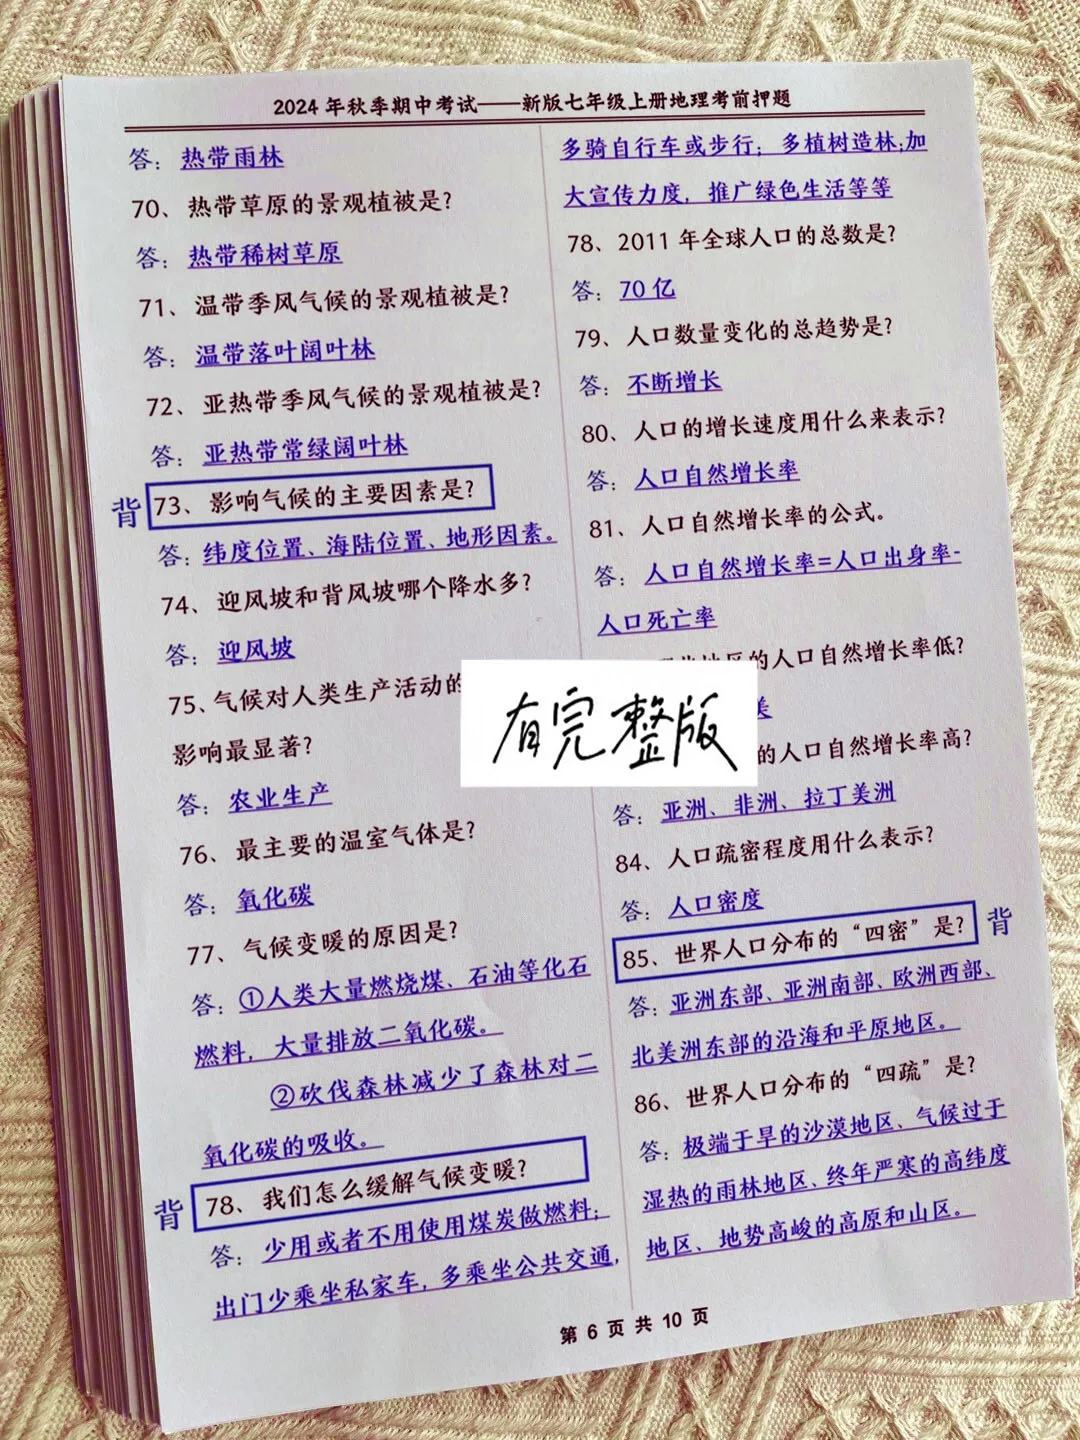 2024 年秋季期中考试——新版七年级上册地理考前押题
答：热带雨林
70、热带草原的景观植被是?
答：热带稀树草原
71、温带季风气候的景观植被是?
答：温带落叶阔叶林
72、亚热带季风气候的景观植被是?
答：亚热带常绿阔叶林
背
73、影响气候的主要因素是?
答：纬度位置、海陆位置、地形因素。
74、迎风坡和背风坡哪个降水多?
答：迎风坡
75、气候对人类生产活动的
影响最显著?
答：农业生产
76、最主要的温室气体是?
答：氧化碳
77、气候变暖的原因是?
答：①人类大量燃烧煤、石油等化石
燃料，大量排放二氧化碳。
②砍伐森林减少了森林对二
氧化碳的吸收。
背
78、我们怎么缓解气候变暖?
答：少用或者不用使用煤炭做燃料；
出门少乘坐私家车，多乘坐公共交通，
多骑自行车或步行；多植树造林;加
大宣传力度，推广绿色生活等等
78、2011 年全球人口的总数是?
答：70 亿
79、人口数量变化的总趋势是?
答：不断增长
80、人口的增长速度用什么来表示?
答：人口自然增长率
81、人口自然增长率的公式。
答：人口自然增长率=人口出身率-
人口死亡率
地区的人口自然增长率低?
美
的人口自然增长率高?
答：亚洲、非洲、拉丁美洲
84、人口疏密程度用什么表示?
答：人口密度
85、世界人口分布的“四密”是?
背
答：亚洲东部、亚洲南部、欧洲西部、
北美洲东部的沿海和平原地区。
86、世界人口分布的“四疏”是?
答：极端于旱的沙漠地区、气候过于
湿热的雨林地区、终年严寒的高纬度
地区、地势高峻的高原和山区。
有完整版
第 6 页 共 10 页